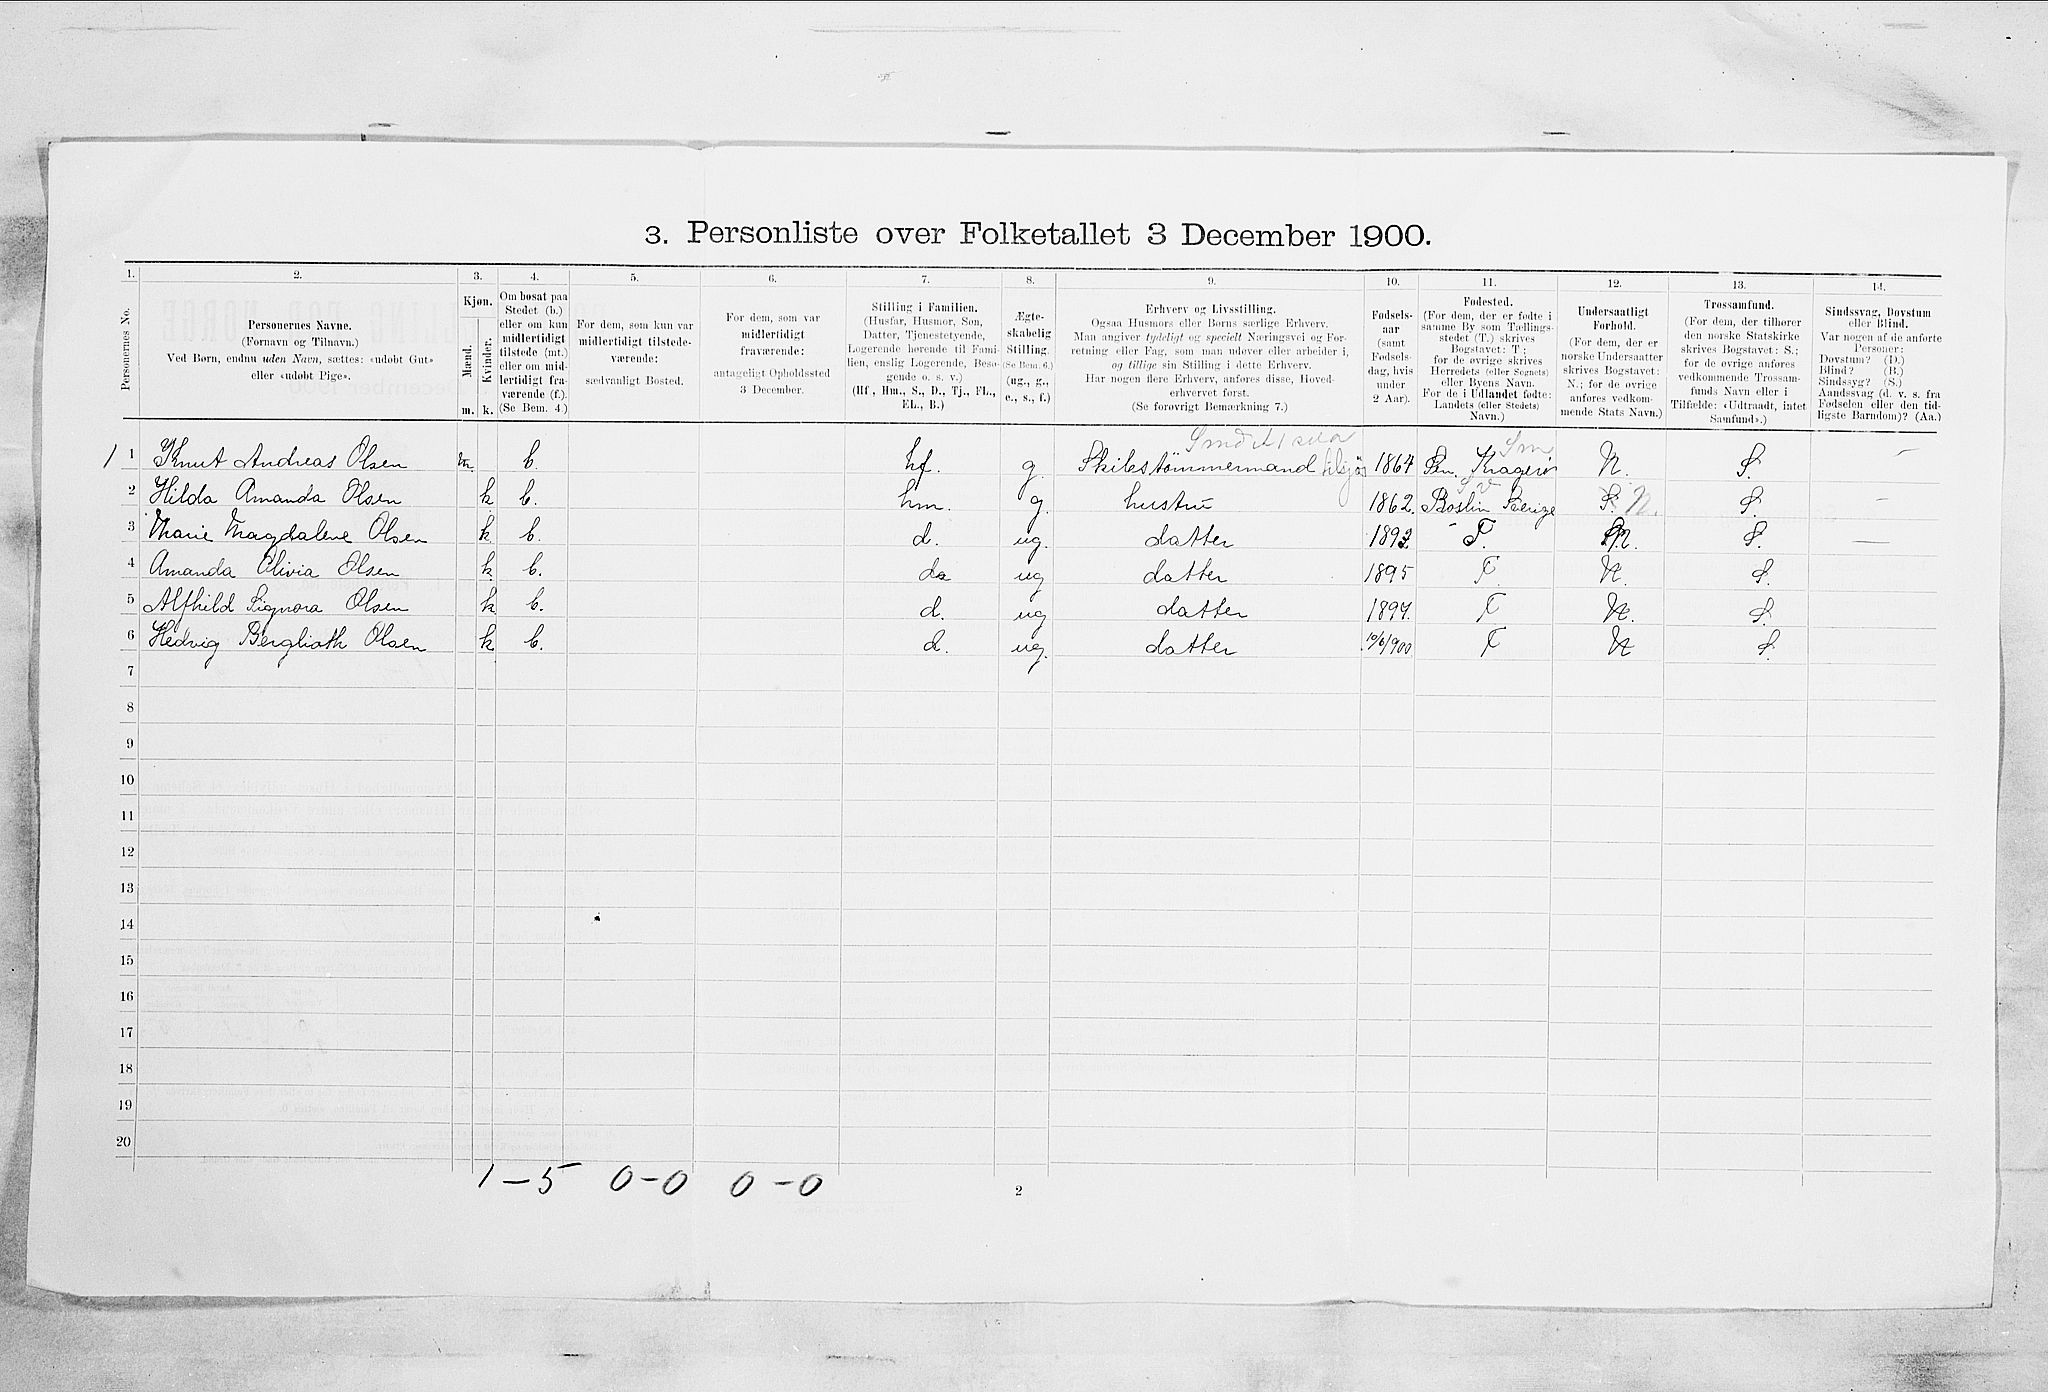 3. Personliste over Folketallet 3 December 1900.
1. 2. 3. 4. 5. 6. 7. 8. 9. 10. 11. 12. 13. 14.
Personernes No.
Personernes Navne.
(Fornavn og Tilnavn.)
Ved Børn, endnu uden Navn, sættes: «udobt Gut»
eller «udobt Pige».
Kjøn.
Mænd.
Kvinder.
m. k.
Om bosat paa
Stedet (b.)
eller om kun
midlertidigt
tilstede (mt.)
eller om mid-
lertidigt fra-
værende (f.).
(Se Bem. 4.)
For dem, som kun var
midlertidigt tilstede-
værende:
sædvanligt Bosted.
For dem, som var
midlertidigt
fraværende:
antageligt Opholdssted
3 December.
Stilling i Familien.
(Husfar, Husmor, Søn,
Datter, Tjenestetyende,
Logerende hørende til Fami-
lien, enslig Logerende, Besø-
gende o. s. v.)
(Hf., Hm., S., D., Tj., FL.,
EL., B.)
Ægte-
skabelig
Stilling.
(Se Bem. 6.)
(ug., g.,
e., s., f.)
Erhverv og Livsstilling.
Ogsaa Husmors eller Børns særlige Erhverv.
Man angiver tydeligt og specielt Næringsvei og For-
retning eller Fag, som man udøver eller arbeider i,
og tillige sin Stilling i dette Erhverv.
Har nogen flere Erhverv, anføres disse, Hoved-
erhvervet først.
(Se forøvrigt Bemærkning 7.)
Fødsels-
aar
(samt
Fødsels-
dag, hvis
under
2 Aar).
Fødested.
(For dem, der er fødte i
samme By som Tællings-
stedet (T.) skrives
Bogstavet: T.;
for de øvrige skrives
Herredets (eller Sognets)
eller Byens Navn.
For de i Udlandet fødte:
Landets (eller Stedets)
Navn.)
Undersaatligt
Forhold.
(For dem, der er
norske Undersaatter
skrives Bogstavet:
N.; for de øvrige
anføres vedkom-
mende Stats Navn.)
Trossamfund.
(For dem, der tilhører
den norske Statskirke
skrives Bogstavet: S.;
for de øvrige anføres
vedkommende Trossam-
funds Navn eller i
Tilfælde: «Udtraadt, intet
Samfund».)
Sindssvag, Døvstum
eller Blind.
Var nogen af de anførte
Personer:
Døvstum? (D.)
Blind? (B.)
Sindssyg? (S.)
Aandssvag (d. v. s. fra
Fødselen eller den tid-
ligste Barndom)? (Aa.)
1 1 Knut Andreas Olsen m. b. hf. g. Skibstömmermand 1864 Kragerø N. S. –
2 Hilda Amanda Olsen k b. hm. g. hustru 1862. Sverige S. N. S. –
3 Marie Magdalene Olsen k b. d. ug. datter 1893 T. N. S. –
4 Amanda Olivia Olsen k. b. d ug datter 1895 T. N. S.
5 Alfhild Signora Olsen k b. d. ug datter 1897. T N. S.
6 Hedvig Berglioth Olsen k b. d. ug. datter 10/6 1900 T N S.
7
8
9
10
11
12
13
14
15
16
17
18
19
20
1 – 5 0 – 0 0 – 0
2